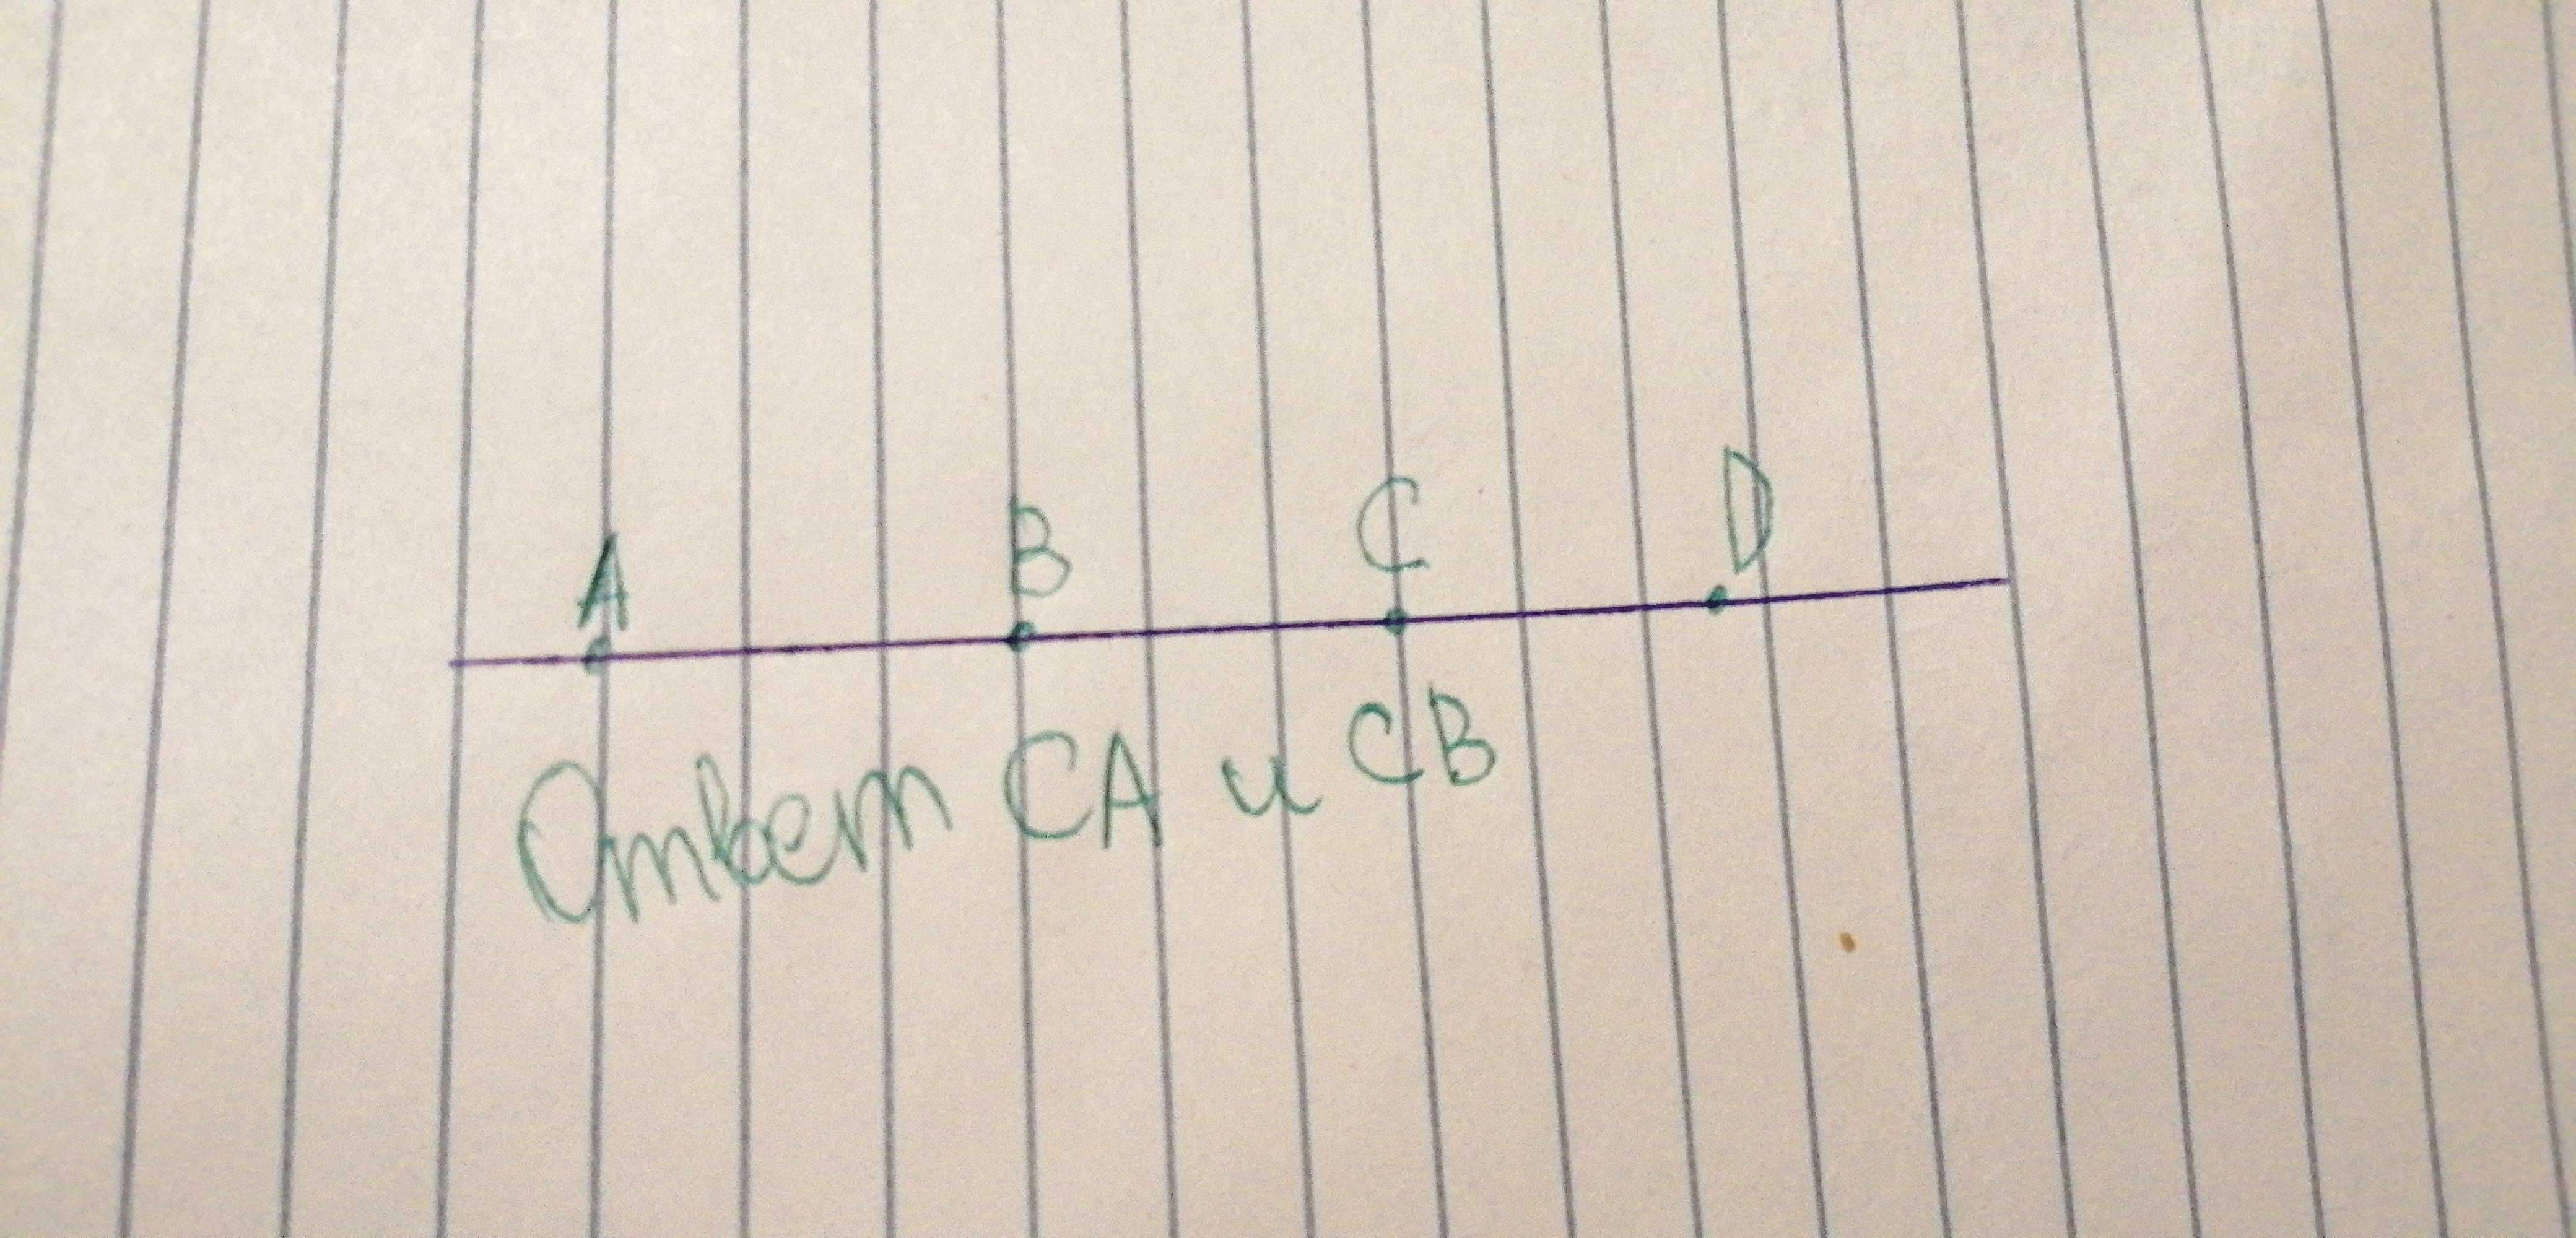 A B C D
Ответ CA и CB